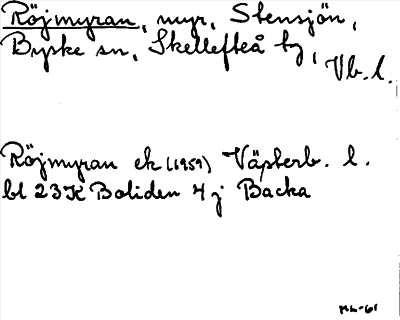 Röjmyran, myr, Stensjön,
Byske sn, Skellefteå tg,
Vb. l.
Röjmyran ek (1959) Västerb. l.
bl 23K Boliden 4j Backa
ML-61